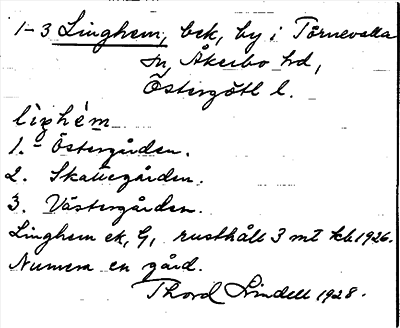 1-3 Linghem, bek, by i Törnevalla
sn, Åkerbo hd,
Östergötl l.
lìŋhèm
1.- Östergården.
2. Skattegården.
3. Västergården.
Linghem ek, G, rusthåll 3 mt kb 1926.
Numera en gård.
Thord Lindell 1928.